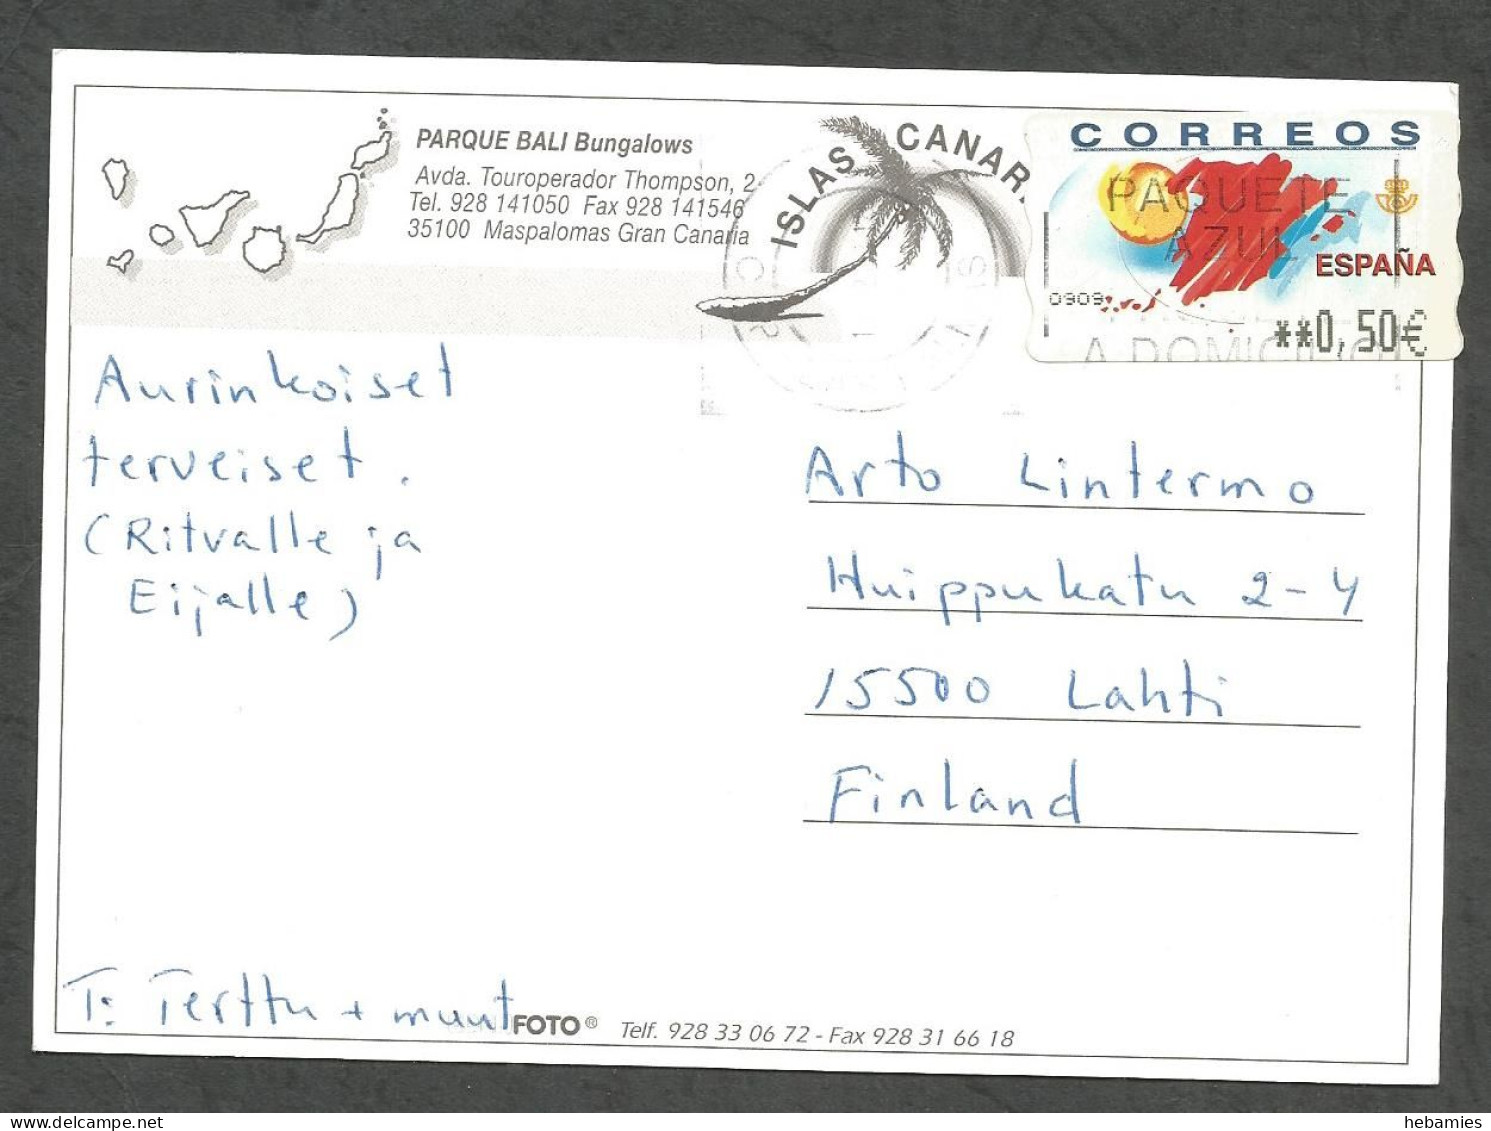 PARQUE BALI Bungalows
Avda. Touroperador Thompson, 2
Tel. 928 141050 Fax 928 141546
35100 Maspalomas Gran Canaria
ISLAS CANAR.
CORREOS
PAQUETE
AZUL
ESPAÑA
0909
**0,50€
A DOMICILIO
Aurinkoiset
terveiset.
(Ritvalle ja
Eijalle)
T: Terttu + muut
Arto Lintermo
Huippukatu 2-4
15500 Lahti
Finland
FOTO ® Telf. 928 33 06 72 - Fax 928 31 66 18
hebamies